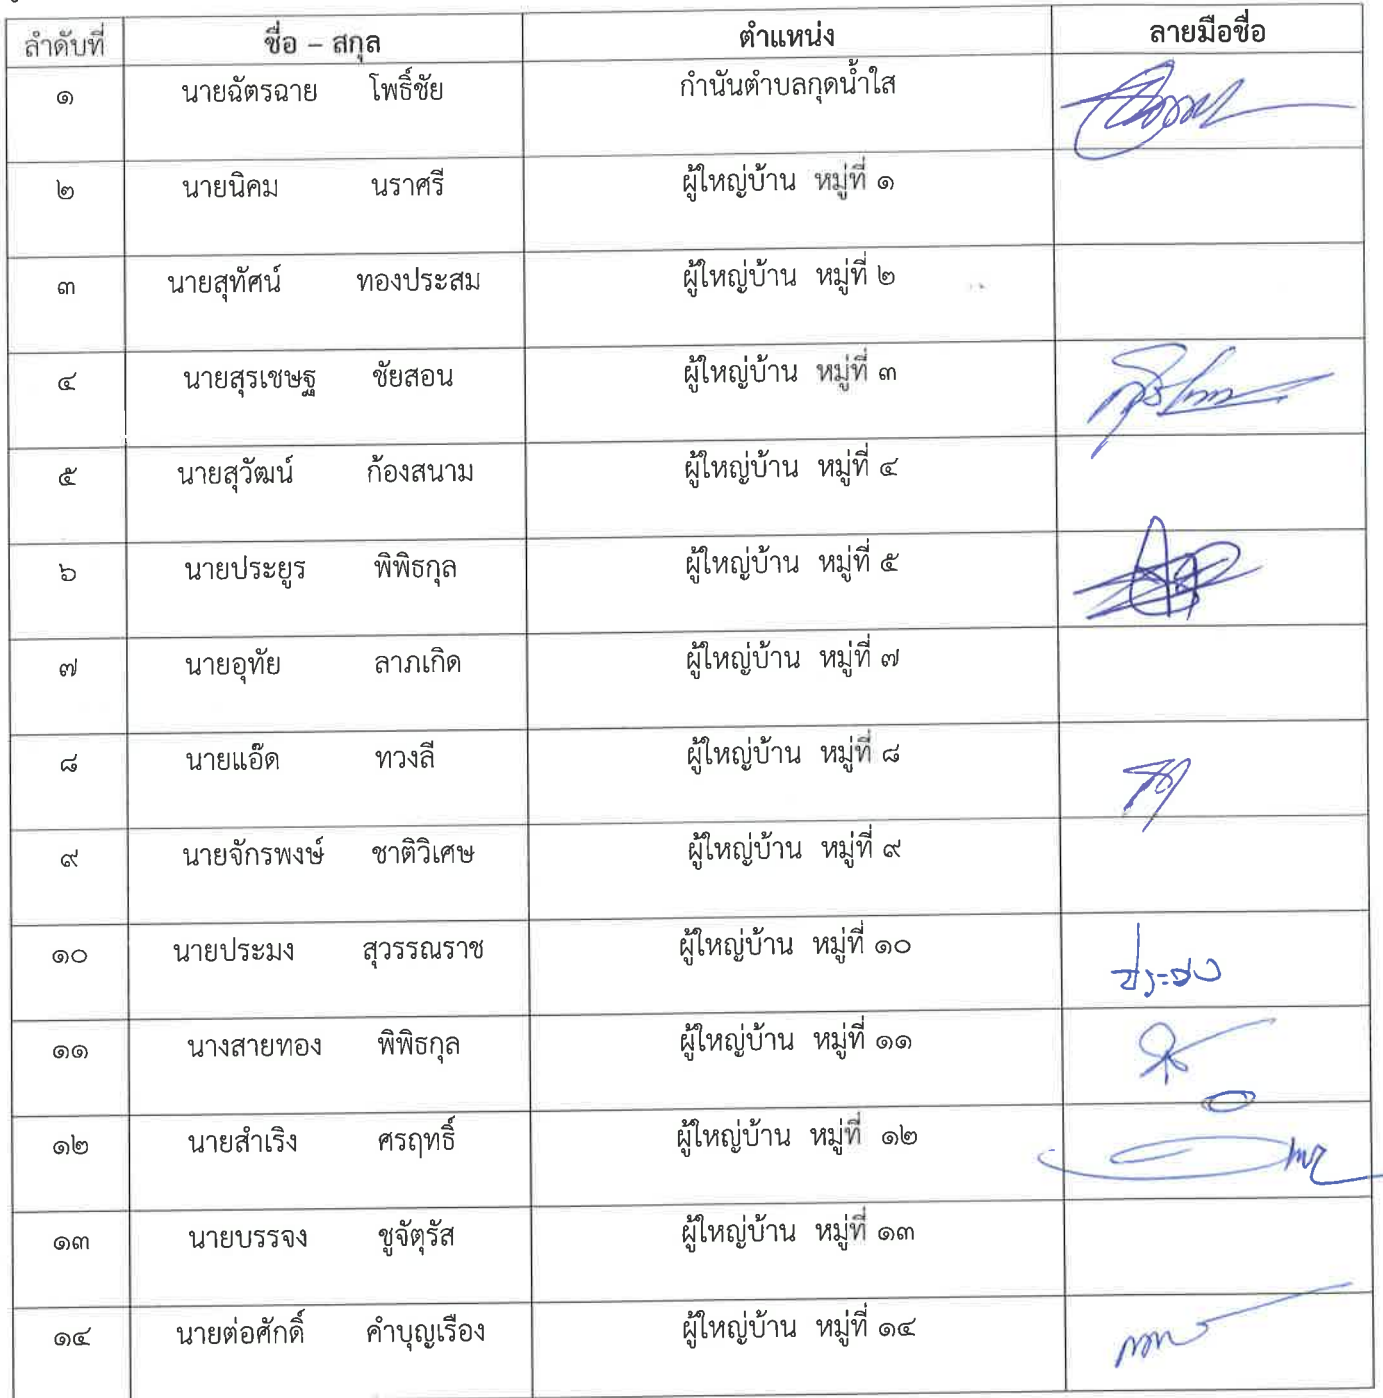 ลำดับที่ ชื่อ – สกุล ตำแหน่ง ลายมือชื่อ
๑ นายฉัตรฉาย โพธิ์ชัย กำนันตำบลกุดน้ำใส
๒ นายนิคม นราศรี ผู้ใหญ่บ้าน หมู่ที่ ๑
๓ นายสุทัศน์ ทองประสม ผู้ใหญ่บ้าน หมู่ที่ ๒
๔ นายสุรเชษฐ ชัยสอน ผู้ใหญ่บ้าน หมู่ที่ ๓
๕ นายสุวัฒน์ ก้องสนาม ผู้ใหญ่บ้าน หมู่ที่ ๔
๖ นายประยูร พิพิธกุล ผู้ใหญ่บ้าน หมู่ที่ ๕
๗ นายอุทัย ลาภเกิด ผู้ใหญ่บ้าน หมู่ที่ ๗
๘ นายแอ๊ด ทวงลี ผู้ใหญ่บ้าน หมู่ที่ ๘
๙ นายจักรพงษ์ ชาติวิเศษ ผู้ใหญ่บ้าน หมู่ที่ ๙
๑๐ นายประมง สุวรรณราช ผู้ใหญ่บ้าน หมู่ที่ ๑๐
๑๑ นางสายทอง พิพิธกุล ผู้ใหญ่บ้าน หมู่ที่ ๑๑
๑๒ นายสำเริง ศรฤทธิ์ ผู้ใหญ่บ้าน หมู่ที่ ๑๒
๑๓ นายบรรจง ชูจัตุรัส ผู้ใหญ่บ้าน หมู่ที่ ๑๓
๑๔ นายต่อศักดิ์ คำบุญเรือง ผู้ใหญ่บ้าน หมู่ที่ ๑๔